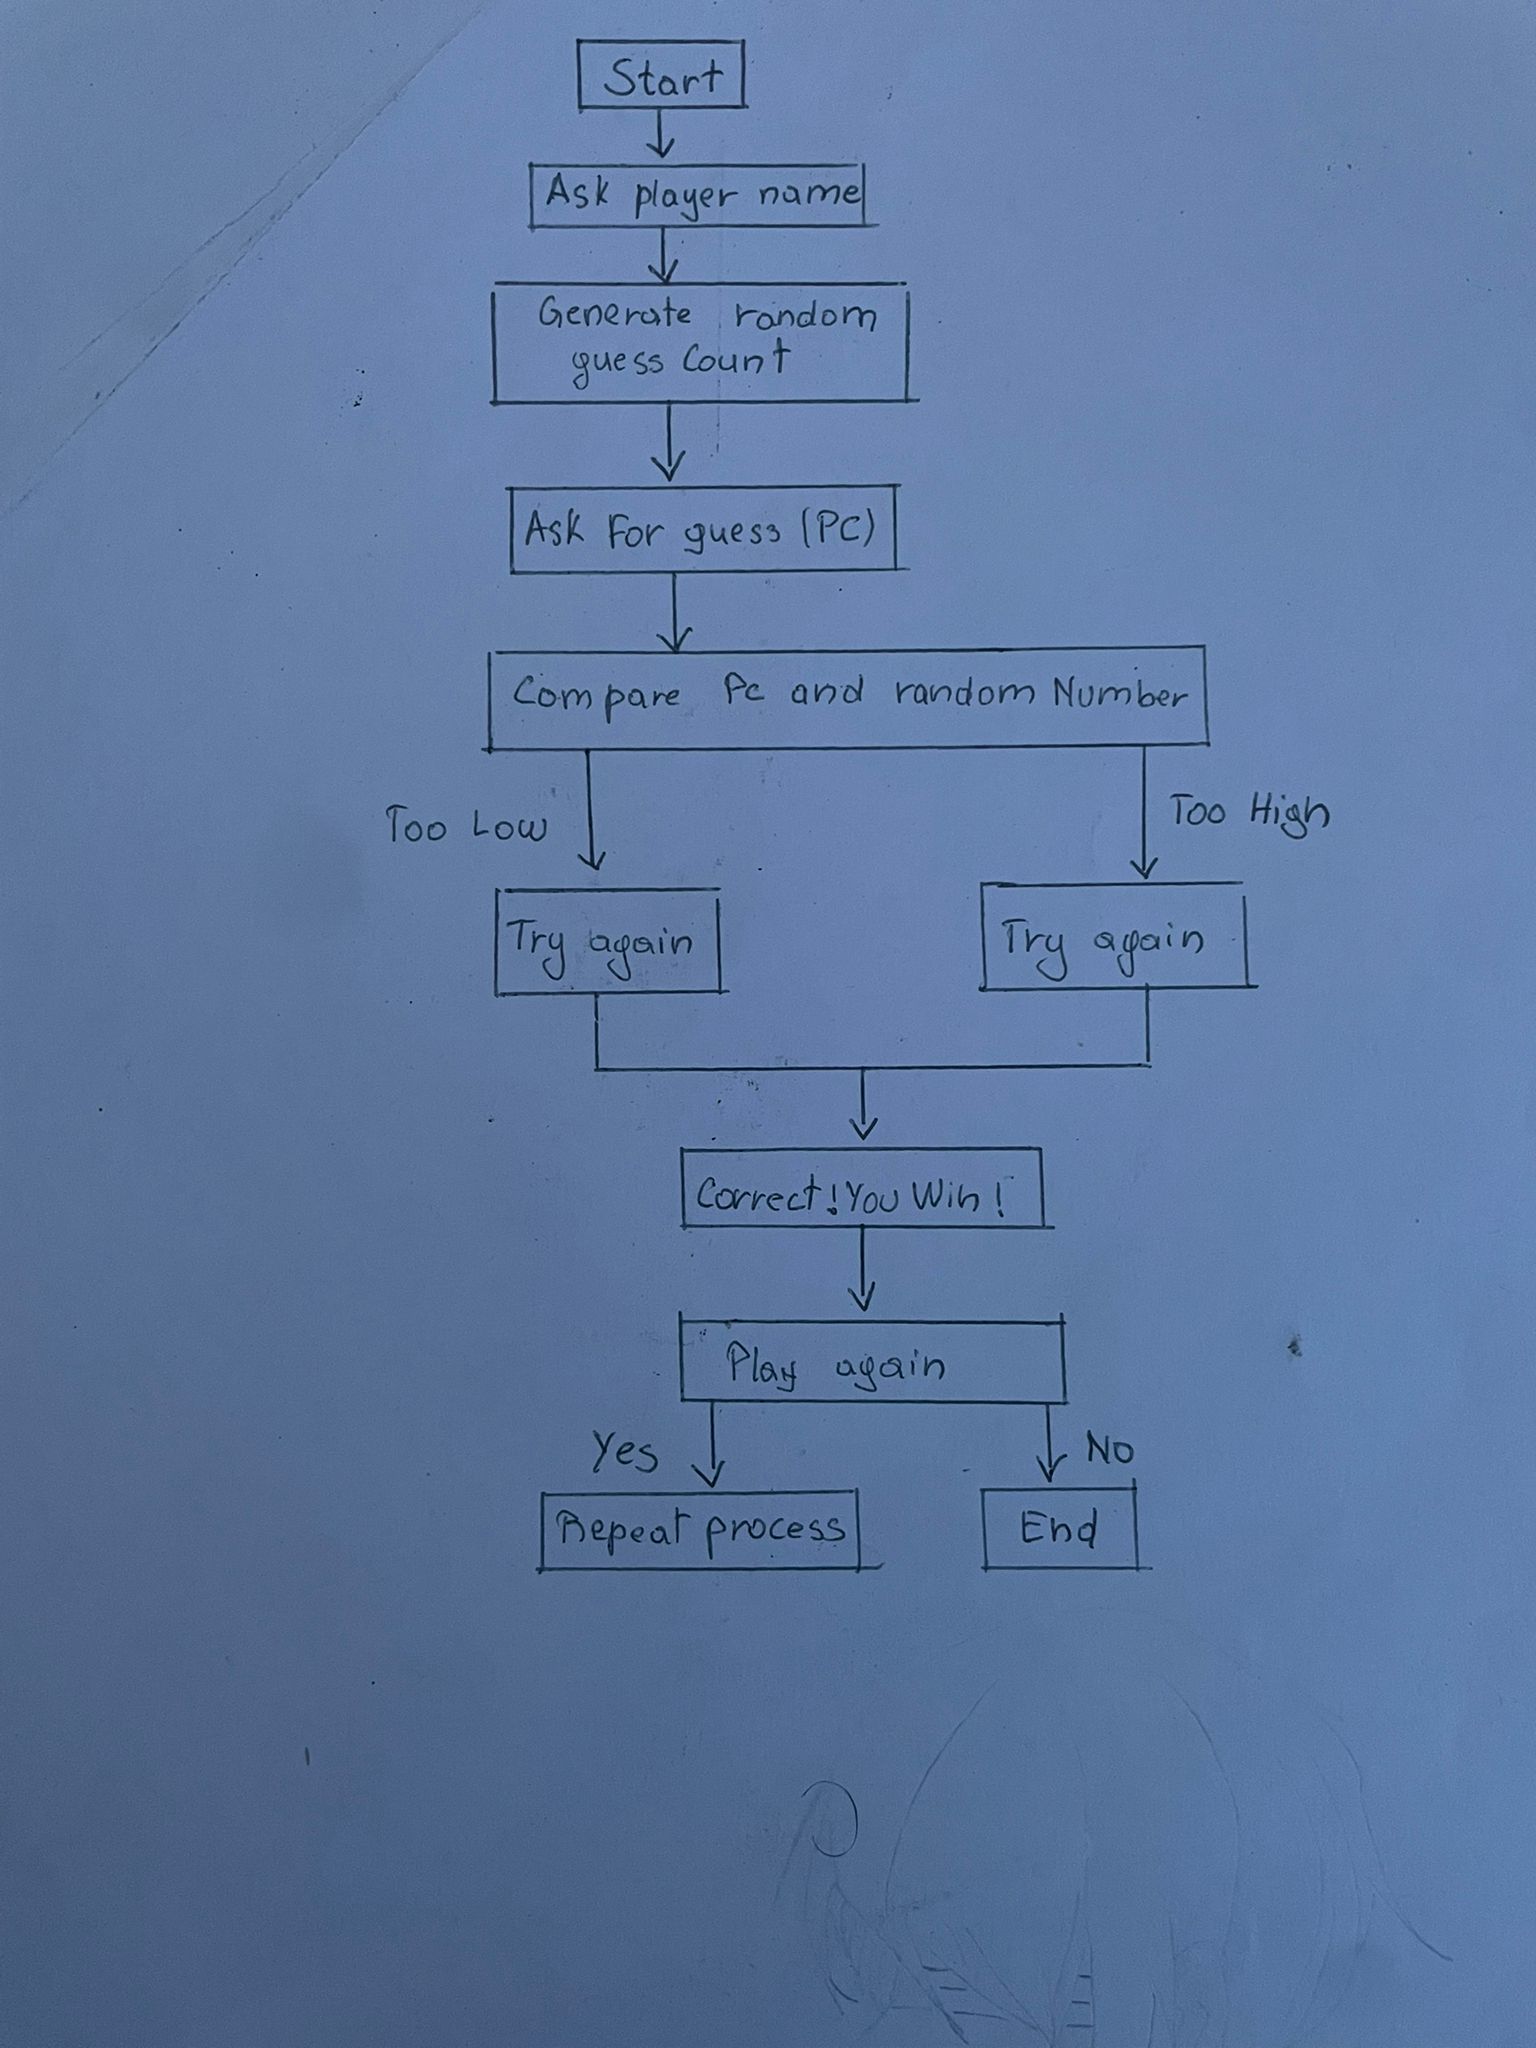 Start
Ask player name
Generate random
guess Count
Ask For guess (PC)
Compare Pc and random Number
Too Low
Too High
Try again
Try again
Correct! You Win!
Play again
Yes
No
Repeat process
End